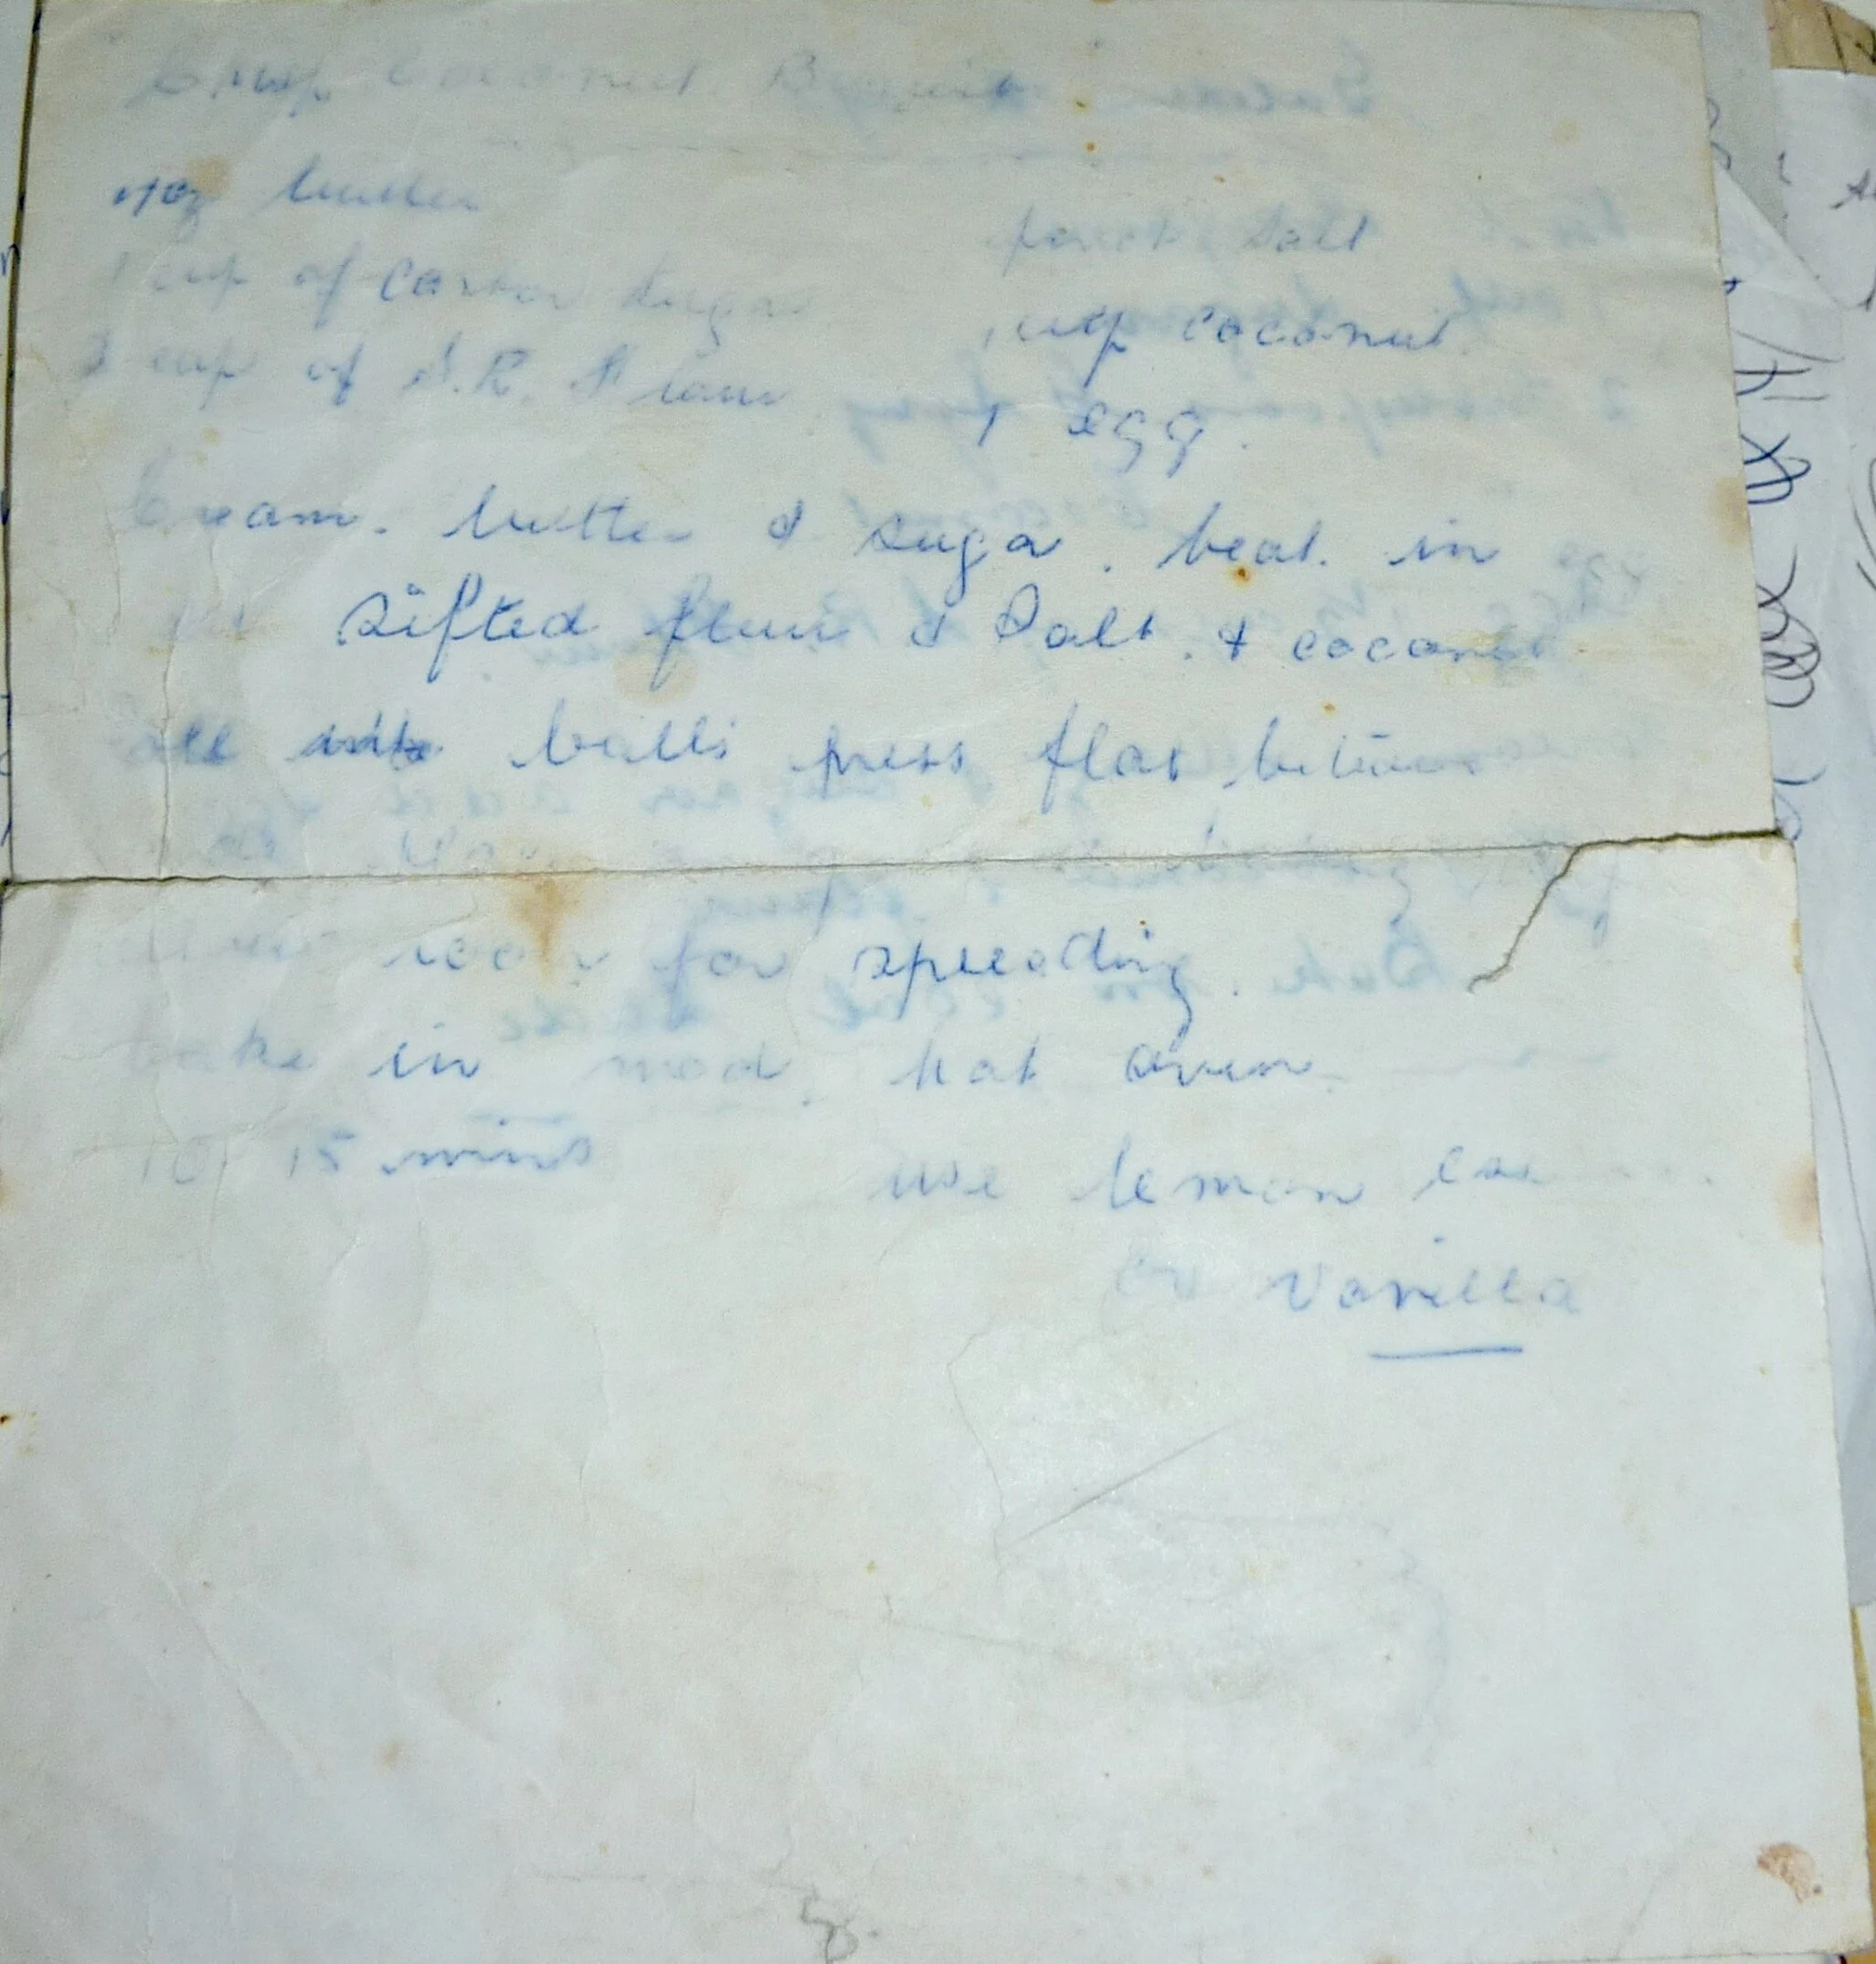 Crisp Coconut Biscuits
4 oz butter
pinch salt
1 cup of Castor sugar
1 cup coconut
cup of S.R. Flour
1 egg.
Cream. butter & suga. beat. in
sifted flour & Salt. & coconut
balls press flat between
room for spreading.
bake in mod. hot oven.
10 15 mins
use lemon ess
or Vanilla